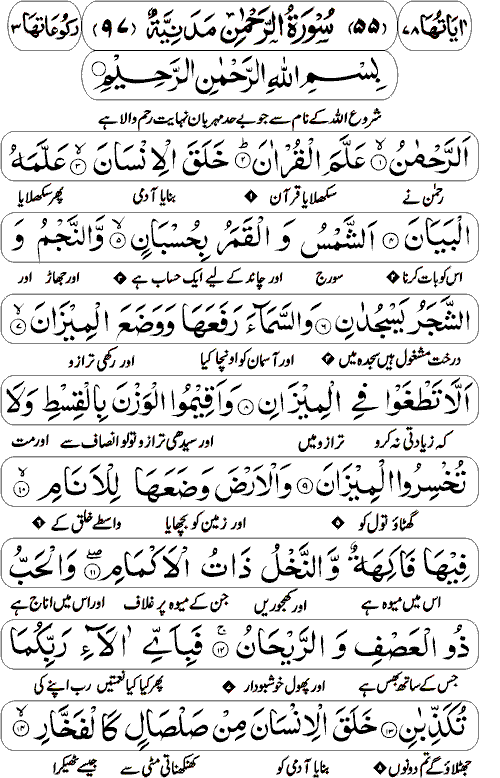 اٰیَاتُهَا ٧٨ (٥٥) سُوْرَةُ الرَّحْمٰنِ مَدَنِیَّةٌ (٩٧) رُكُوْعَاتُهَا ٣
بِسْمِ اللّٰهِ الرَّحْمٰنِ الرَّحِیْمِ
شروع اللہ کے نام سے جو بے حد مہربان نہایت رحم والا ہے
اَلرَّحْمٰنُ ۙ﴿١﴾ عَلَّمَ الْقُرْاٰنَ ؕ﴿٢﴾ خَلَقَ الْاِنْسَانَ ۙ﴿٣﴾ عَلَّمَهُ
رحمٰن نے سکھلایا قرآن ۱ بنایا آدمی پھر سکھلایا
الْبَیَانَ ﴿٤﴾ اَلشَّمْسُ وَ الْقَمَرُ بِحُسْبَانٍ ۙ﴿٥﴾ وَّالنَّجْمُ وَ
اس کو بات کرنا ۲ سورج اور چاند کے لیے ایک حساب ہے ۳ اور جھاڑ اور
الشَّجَرُ یَسْجُدٰنِ ﴿٦﴾ وَالسَّمَآءَ رَفَعَهَا وَوَضَعَ الْمِیْزَانَ ۙ﴿٧﴾
درخت مشغول ہیں سجدہ میں ۴ اور آسمان کو اونچا کیا اور رکھی ترازو
اَلَّا تَطْغَوْا فِی الْمِیْزَانِ ﴿٨﴾ وَاَقِیْمُوا الْوَزْنَ بِالْقِسْطِ وَلَا
کہ زیادتی نہ کرو ترازو میں اور سیدھی ترازو تولو انصاف سے اور مت
تُخْسِرُوا الْمِیْزَانَ ﴿٩﴾ وَالْاَرْضَ وَضَعَهَا لِلْاَنَامِ ۙ﴿١٠﴾
گھٹاؤ تول کو ۵ اور زمین کو بچھایا واسطے خلق کے ۶
فِیْهَا فَاكِهَةٌ وَّالنَّخْلُ ذَاتُ الْاَكْمَامِ ۖ﴿١١﴾ وَالْحَبُّ
اس میں میوہ ہے اور کھجوریں جن کے میوہ پر غلاف اور اس میں اناج ہے
ذُو الْعَصْفِ وَ الرَّیْحَانُ ۚ﴿١٢﴾ فَبِاَیِّ اٰلَآءِ رَبِّكُمَا
جس کے ساتھ بھس ہے اور پھول خوشبودار ۸ پھر کیا کیا نعمتیں رب اپنے کی
تُكَذِّبٰنِ ﴿١٣﴾ خَلَقَ الْاِنْسَانَ مِنْ صَلْصَالٍ كَالْفَخَّارِ ۙ﴿١٤﴾
جھٹلاؤ گے تم دونوں بنایا آدمی کو کھنکھناتی مٹی سے جیسے ٹھیکرا